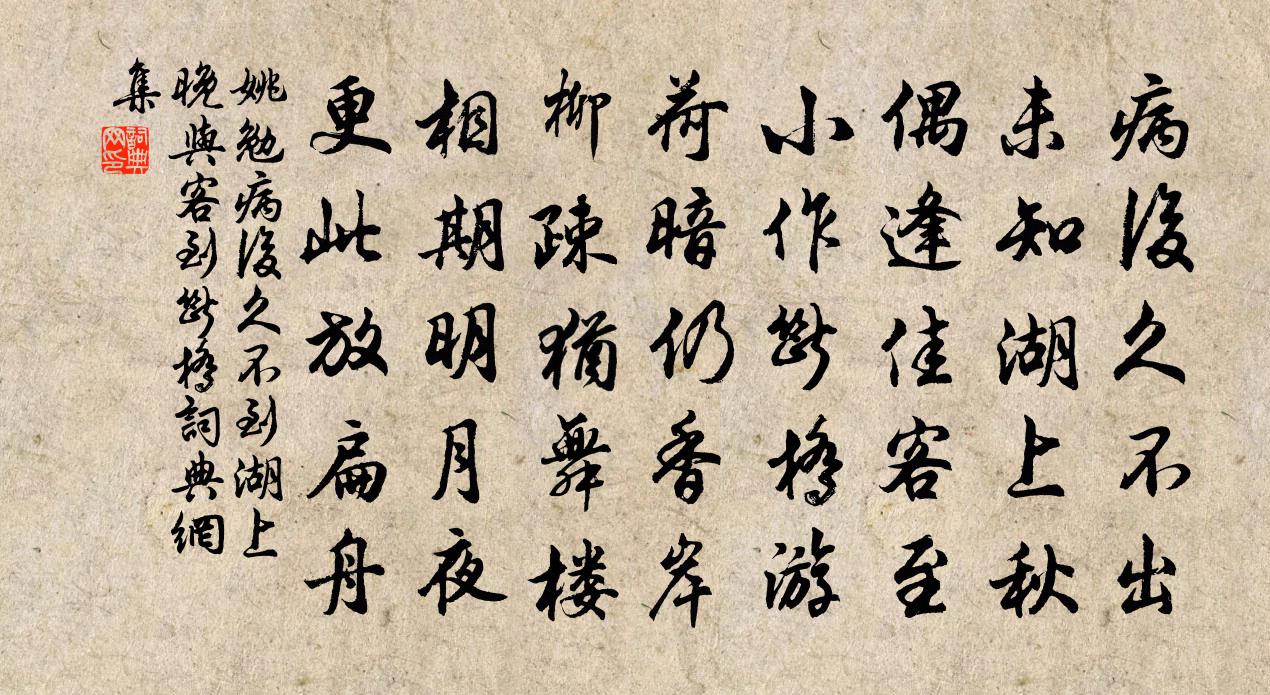 病後久不出
未知湖上秋
偶逢佳客至
小作斷橋游
荷暗仍香岸
柳疎猶舞楼
相期明月夜
更此放扁舟
姚勉病後久不到湖上
晚與客到斷橋詞典網
集
詞典
网印